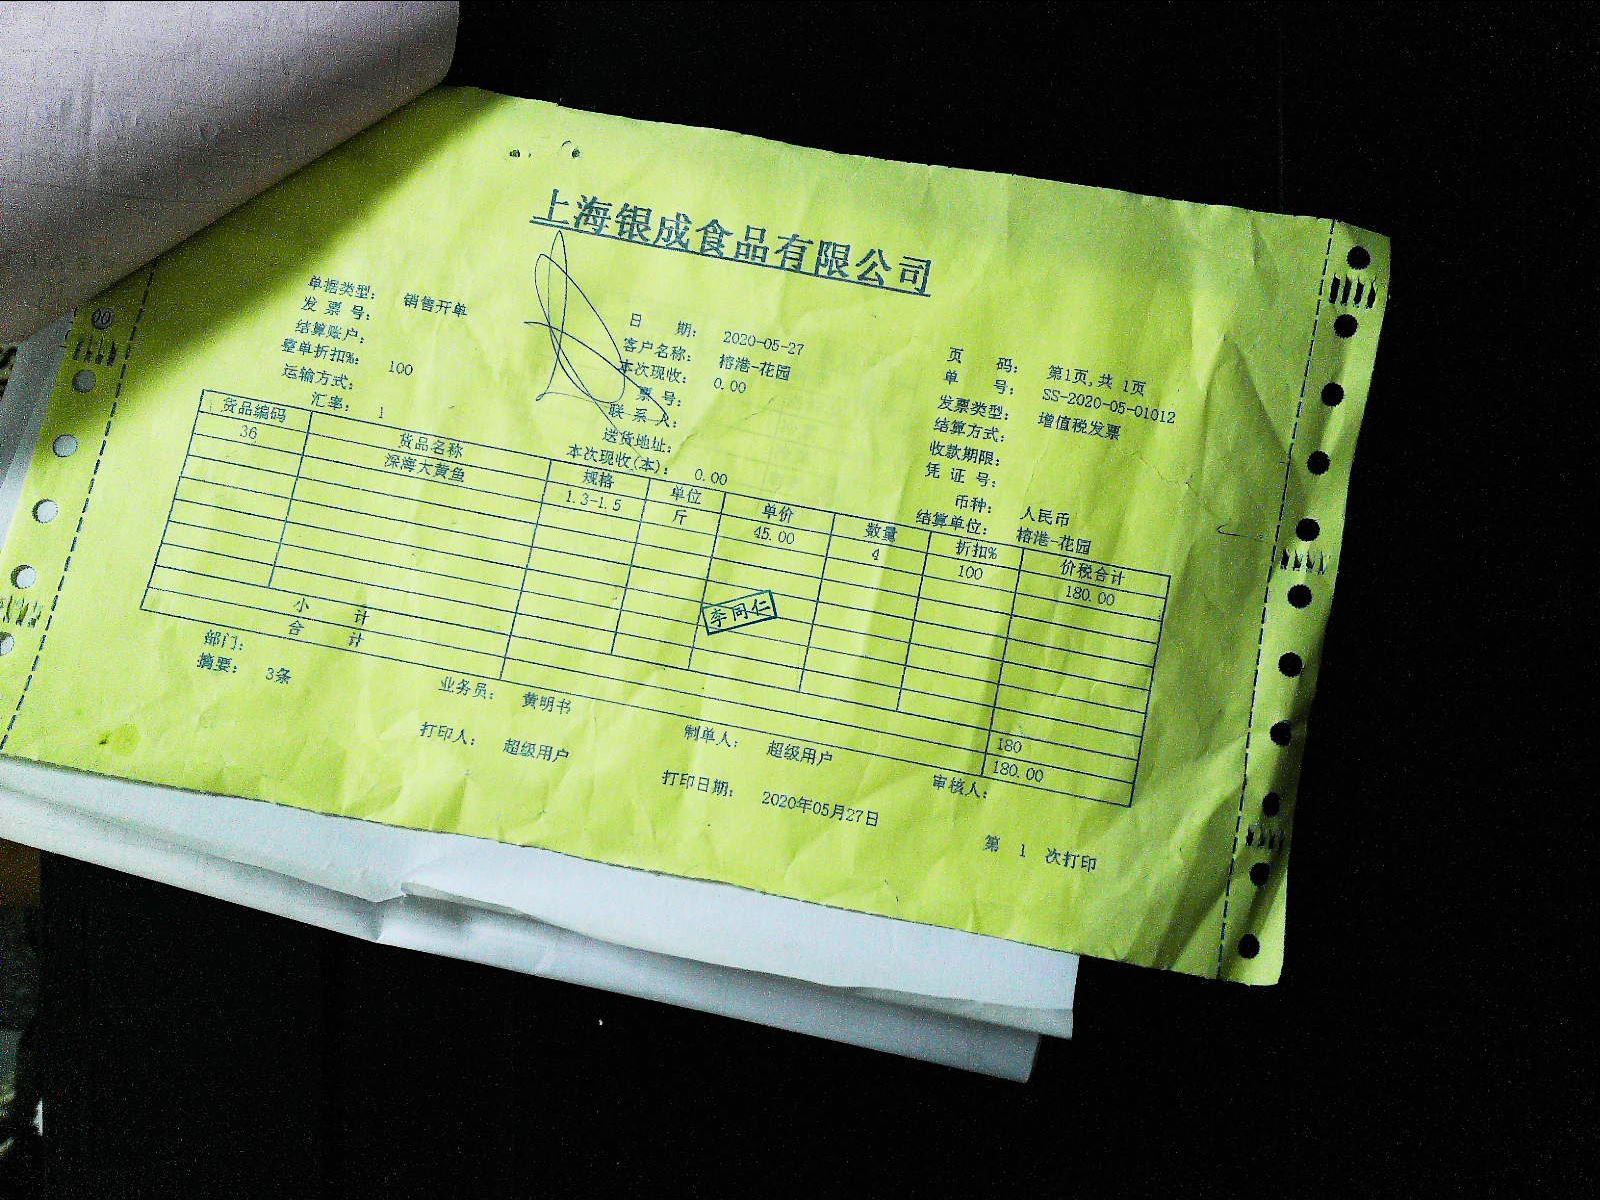 上海银成食品有限公司
单据类型： 销售开单 日 期： 2020-05-27 页 码： 第1页,共 1页
发 票 号： 客户名称： 榕港-花园 单 号： SS-2020-05-01012
结算账户： 本次现收： 0.00 发票类型： 增值税发票
整单折扣%： 100 票 号： 结算方式：
运输方式： 联 系 人： 收款期限：
汇率： 1 送货地址： 凭 证 号：
本次现收(本)： 0.00 币种： 人民币
结算单位： 榕港-花园
货品编码 货品名称 规格 单位 单价 数量 折扣% 价税合计
36 深海大黄鱼 1.3-1.5 斤 45.00 4 100 180.00
李同仁
小 计 180
合 计 180.00
部门： 业务员： 黄明书 制单人： 超级用户 审核人：
摘要： 3条
打印人： 超级用户 打印日期： 2020年05月27日 第 1 次打印